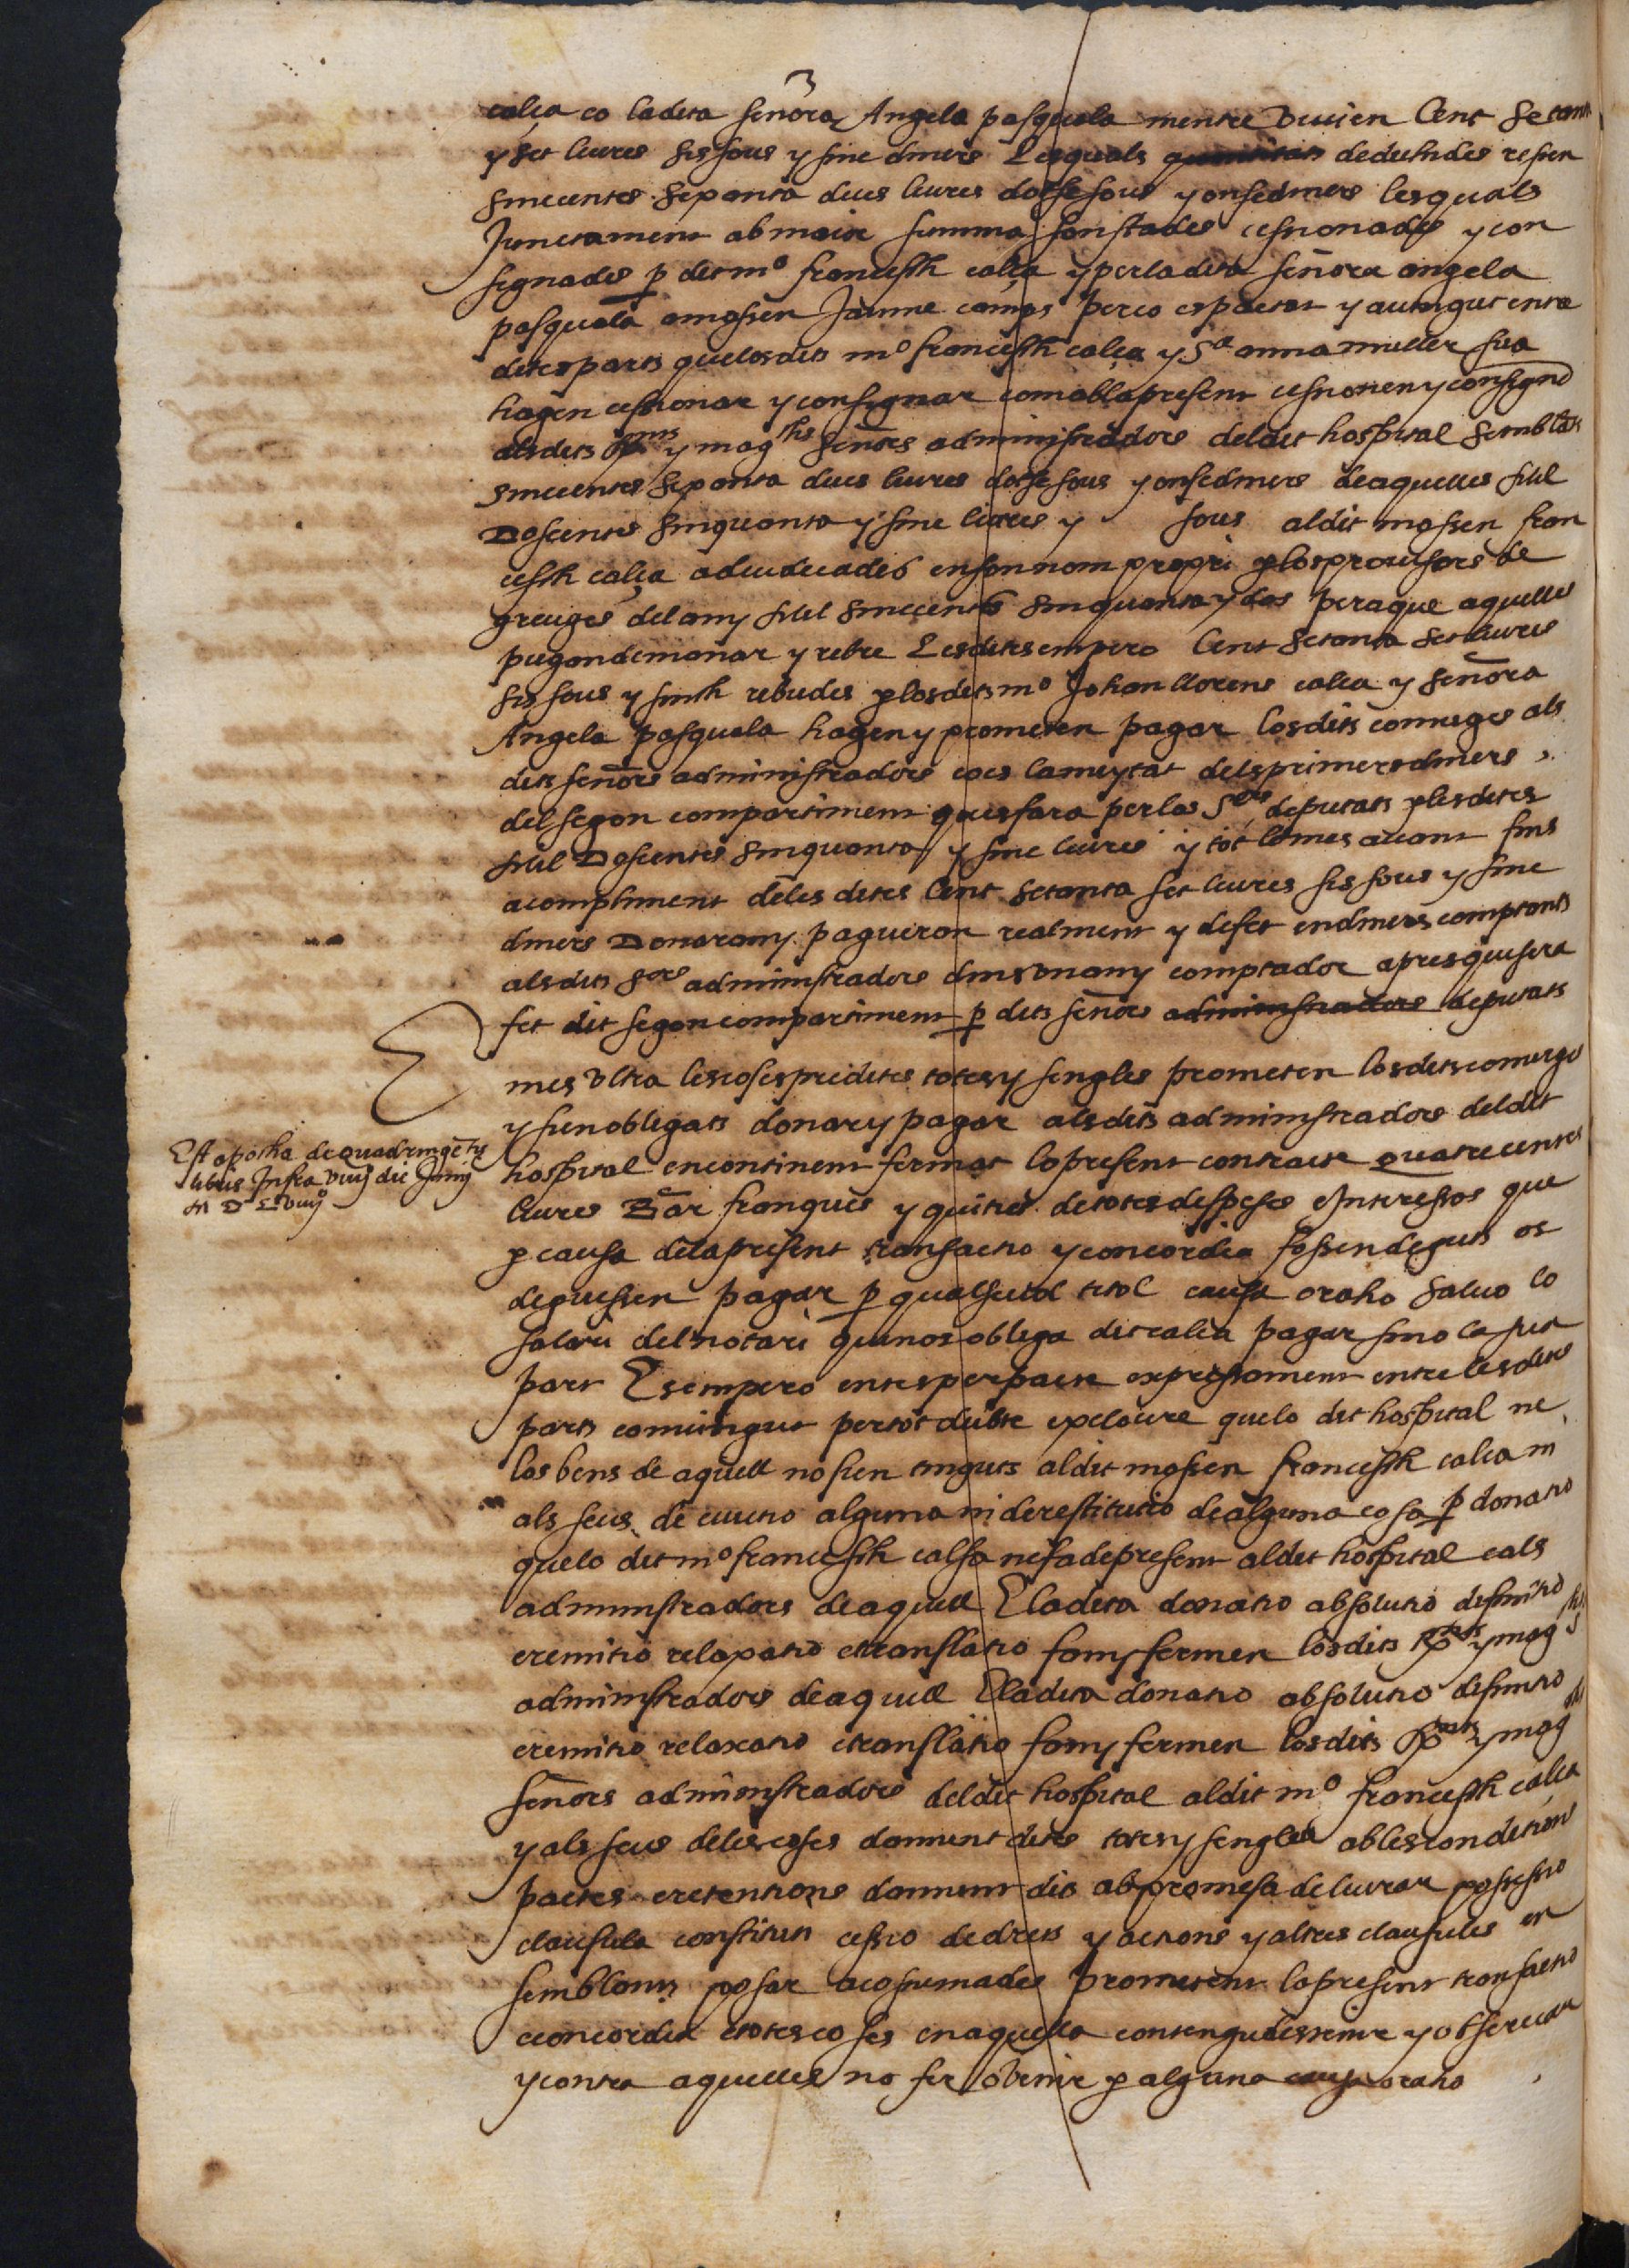 calça co ladita señora Angela pasquala mentre vivien Cent Setanta
y set liures sis sous y sinc diners Lesquals quantitats deduhides resten
sinccentes sexanta dues liures dotse sous y onsediners lesquals
Junctament ab maior summa son stades cessionades y con
signades p dit mº francesth calça y perladita señora angela
pasquala amossen Jaume camps perco espactat y auengut entre
dites parts quelosdits mº francesth calça y Sª anna muller sua
hagen cessionar y consignar comablapresent cessionen y consignē
alsdits Rnts y magchs señors administradors deldit hospital semblāts
sinccentes sexanta dues liures dotse sous y onsediners deaquelles Mil
Doscentes sinquanta y sinc liures y sous aldit mossen fran
cesth calça adiudicades ensonnom propri plosprouisors de
greuges delany Mil sinccents sinquanta y dos peraque aquelles
pugandemanar y rebre Lesditesempero Cent Setanta Set liures
sis sous y sinch rebudes plosdits mº Johan llorens calça y señora
Angela pasquala hagen y prometen pagar losdits conjuges als
dits señors administradors coes lameytat delsprimersdiners
delsegon compartiment quesfara perlos Sors deputats plesdites
Mil Doscentes sinquanta y sinc liures y tot lomes auant fins
acompliment deles dites Cent Setanta set liures sis sous y sinc
diners Donaran y pagueran realment y defet endiners comptants
alsdits Sors administradors dinsvnany comptador apresquesera
fet dit segon compartiment p dits señors administradors deputats
mes vltra lescosespredites totesy sengles prometen losditsconjuges
y sienobligats donary pagar alsdits administradors deldit
hospital encontinent fermat lopresent contracte quatrecentes
liures Bar franques y quities detotesdespeses eInteressos que
p causa delapresent transactio y concordia fossen deguts os
deguessen pagar p qualseuol titol causa oraho saluo lo
salari delnotari quenos obliga ditcalça pagar sino la sua
part Esempero entesperpacte expressament entre lesdites
parts comuingut pertot dubte excloure quelo dit hospital ne
los bens de aquell no sien tinguts aldit mossen francesth calça ni
als seus de euictio alguna ni derestitutio dealguna cosa p donatio
quelo dit mº francesth calsa nefadepresent aldit hospital eals
administradors deaquell Eladita donatio absolutio difinitio
eremitio relaxatio etranslatio fany fermen losdits Rnts y magchs
administradors deaquell Eladita donatio absolutio difinitio
eremitio relaxatio etranslatio fany fermen losdits Rnts y magchs
señors administradors deldit hospital aldit mº francesth calça
y als seus delescoses damuntdites totesy sengles ablescondicions
pactes eretentions damunt dits abpromesa deliurar possessio
clausula constituti cessio dedrets y actions y altres clausules en
semblants posar acostumades prometent lapresent transactio
econcordia etotescoses enaquella contengudestenir y obseruar
y contra aquelles no fer ovenir p alguna causa oraho
Est apocha de quadringētis
libris Infra viiij die Junij
M D Lviiijº